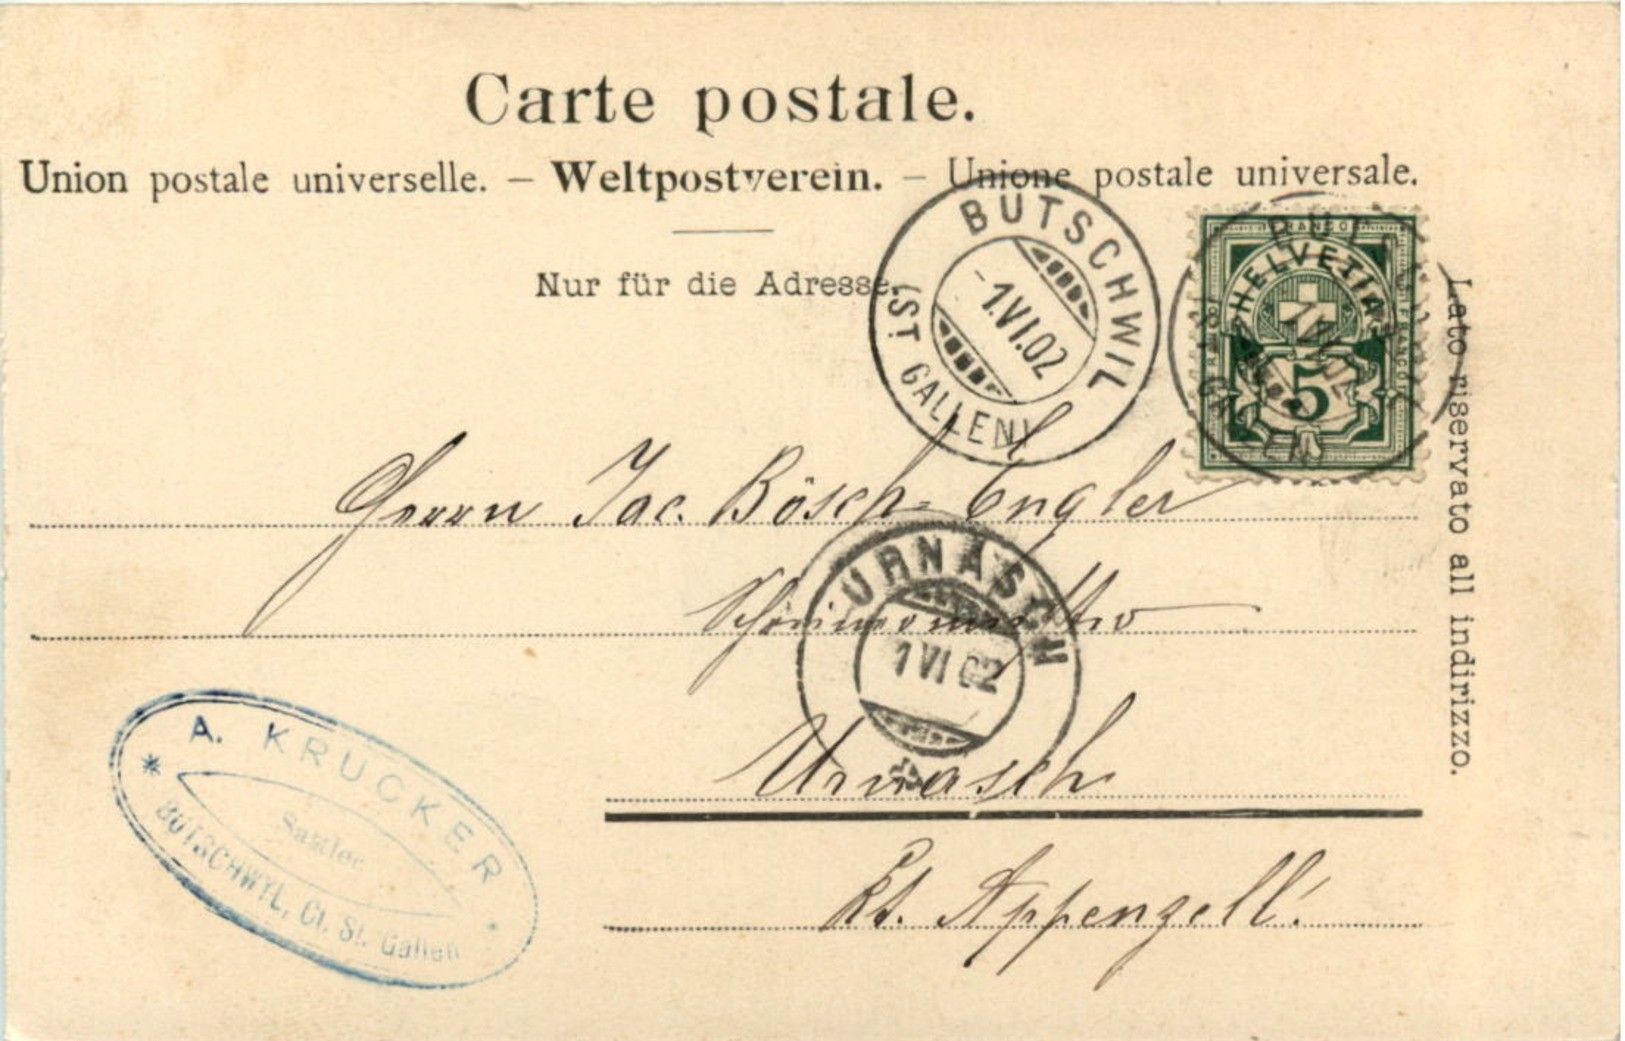 Carte postale.
Union postale universelle. – Weltpostverein. – Unione postale universale.
Nur für die Adresse.
BUTSCHWIL
(ST GALLEN)
-1.VI.02
FRANCO
HELVETIA
5
GALLEN
Lato riservato all indirizzo.
Herrn Jac. Bösch-Engler
URNÄSCH
1 VI 02
Urnäsch
Kt. Appenzell.
A. KRUCKER
Sattler
BÜTSCHWYL, Ct. St. Gallen